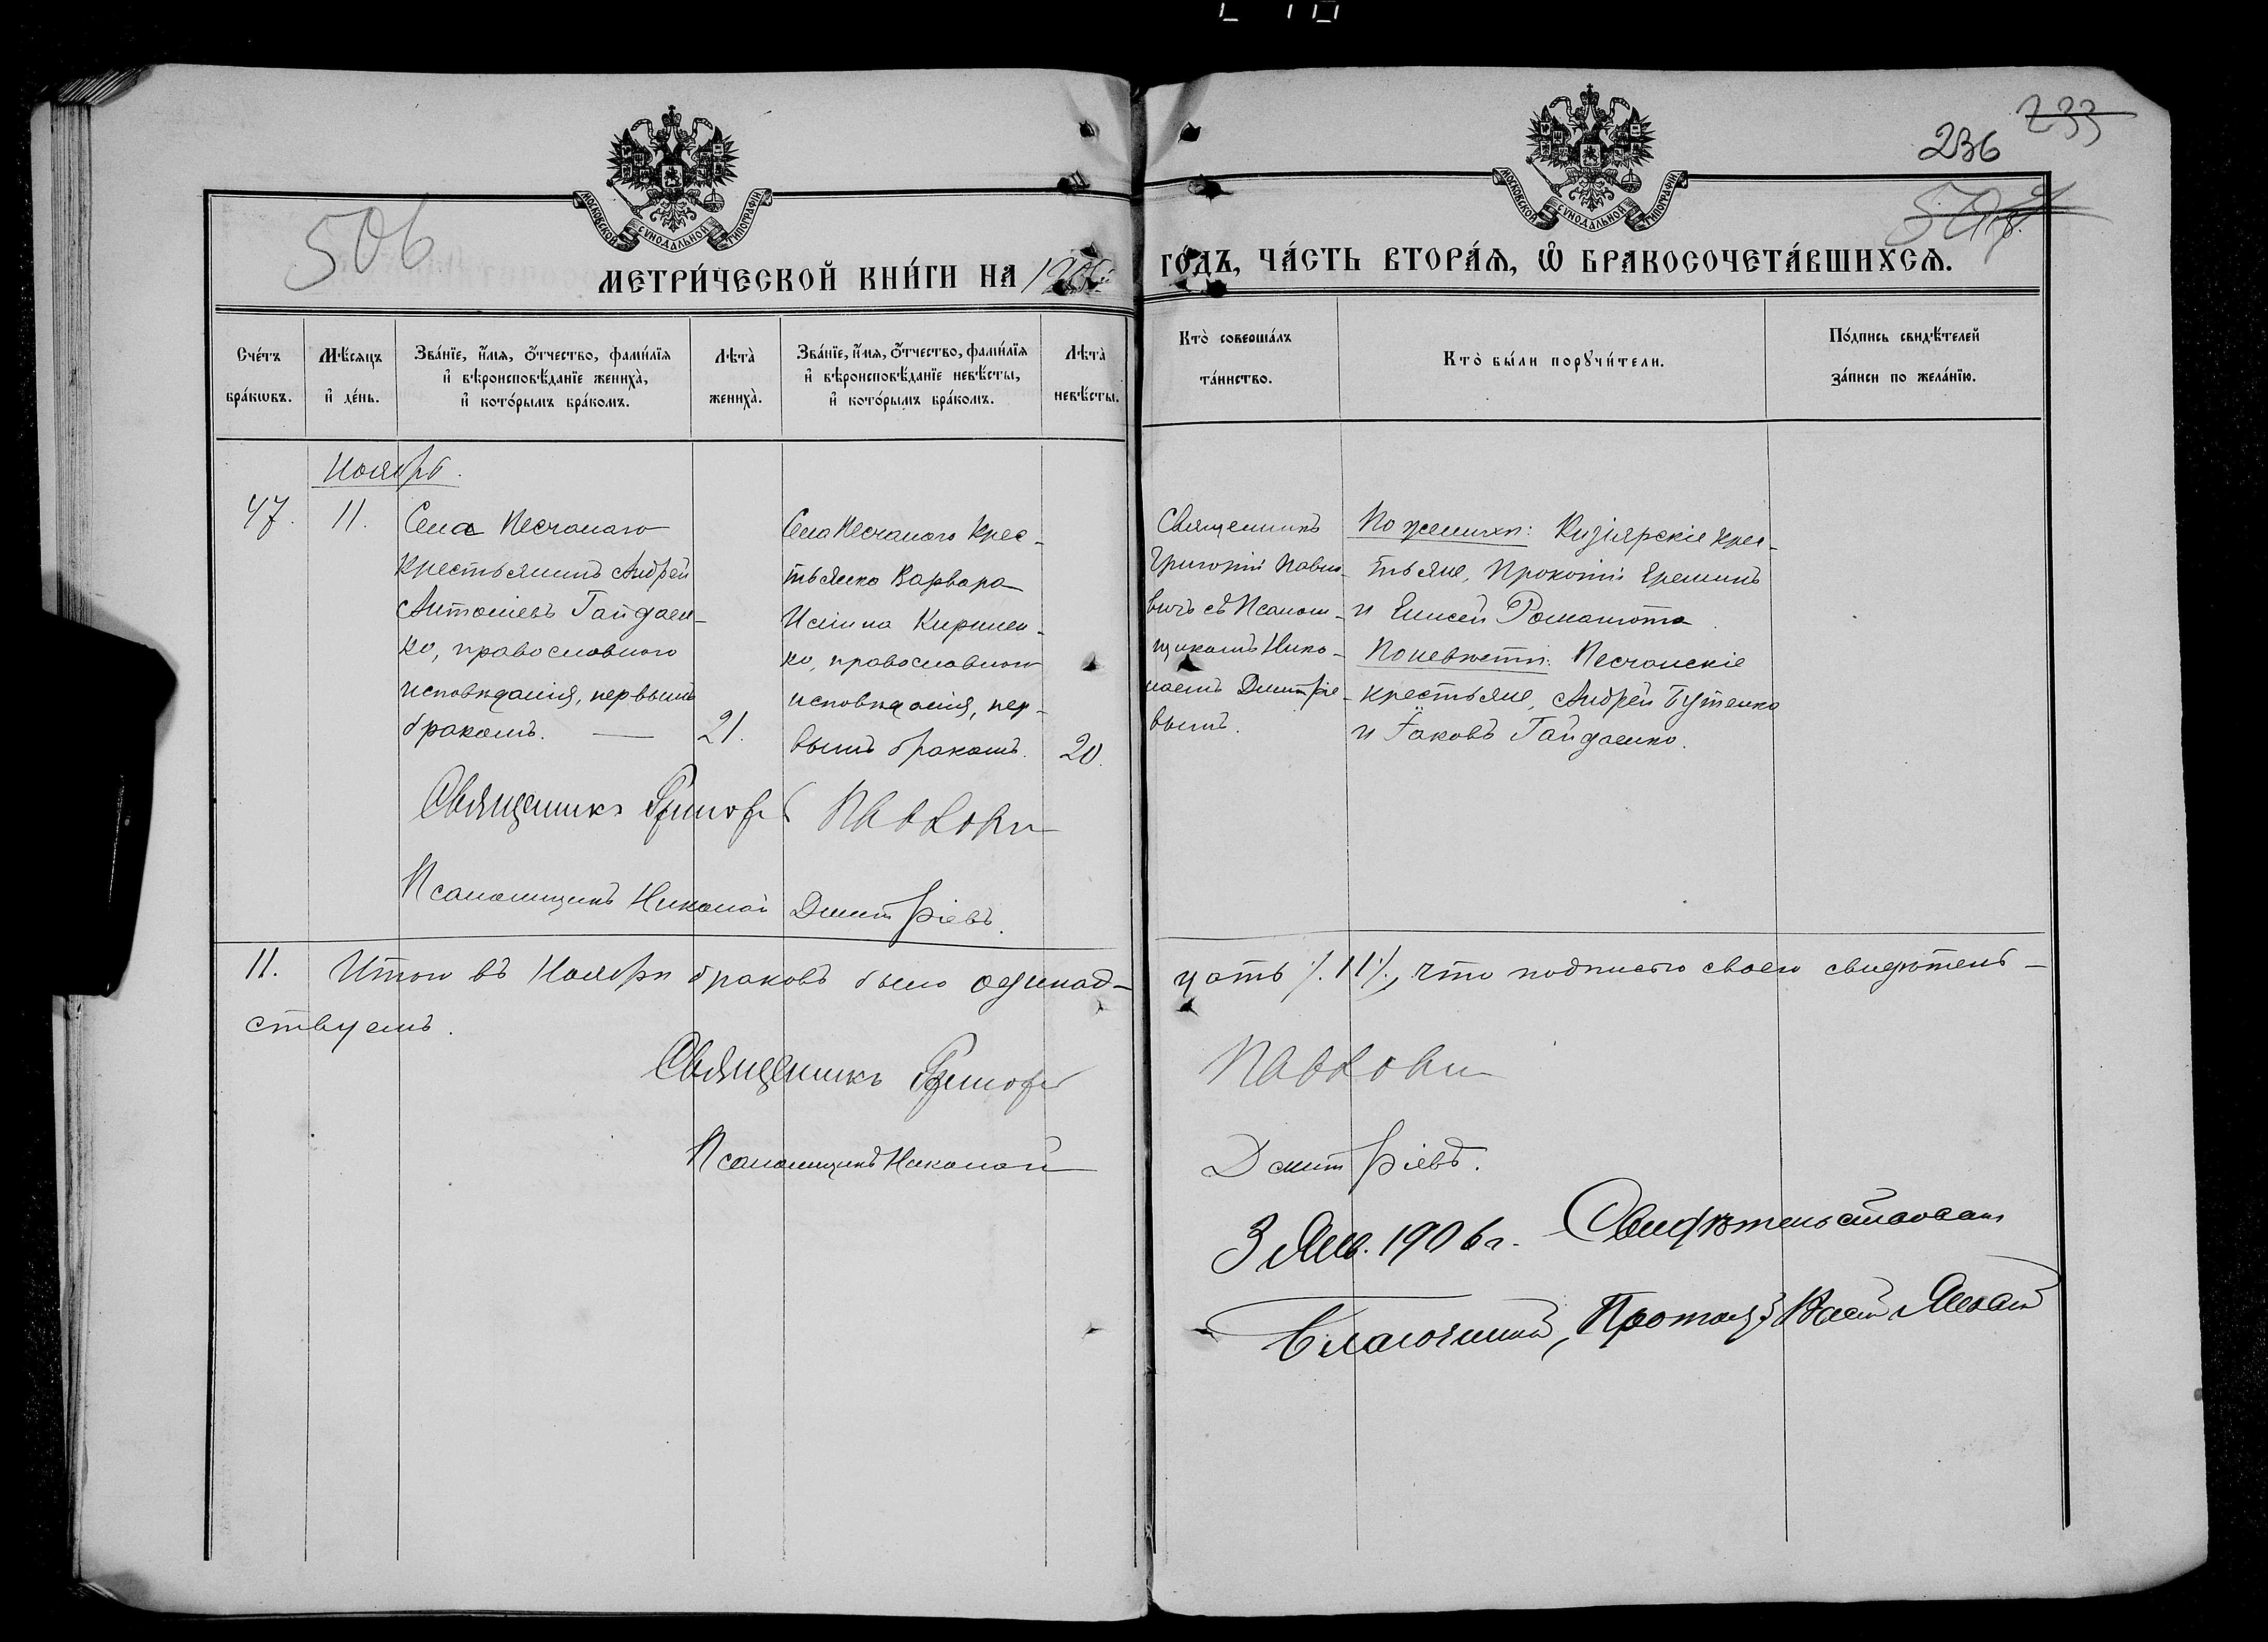 233
236
506
МОСКОВСКОЙ СѴНОДАЛЬНОЙ ТИПОГРАФІИ
МОСКОВСКОЙ СѴНОДАЛЬНОЙ ТИПОГРАФІИ
МЕТРИ́ЧЕСКОЙ КНИ́ГИ НА
ГО́ДЪ, ЧА́СТЬ ВТОРА́Ѧ, Ѽ БРАКОСОЧЕТА́ВШИХСѦ.
Сче́тъ бра́кѡвъ.
Мѣ́сяцъ и҆ де́нь.
Зва́нїе, и҆́мя, ѻ҆́тчество, фамѝлїя и҆ вѣроисповѣ́данїе женихà, и҆ кото́рымъ бра́комъ.
Лѣта̀ женихà.
Зва́нїе, и҆́мя, ѻ҆́тчество, фамѝлїя и҆ вѣроисповѣ́данїе невѣ́сты, и҆ кото́рымъ бра́комъ.
Лѣта̀ невѣ́сты.
Кто̀ соверша́лъ та́инство.
Кто̀ бы́ли порꙋчи́тели.
По́дпись свидѣ́телей за́писи по жела́нїю.
Ноября.
47.
11.
Села Песчанаго
крестьянинъ Андрей
Антоніевъ Гайдаен-
ко, православнаго
исповѣданія, первымъ
бракомъ. —
21.
Села Песчанаго крес-
тьянка Варвара
Кирилен-
ко, православнаго
исповѣданія, пер-
вымъ бракомъ.
20.
Священникъ
Григорій Павло-
вичъ съ Псалом-
щикомъ Нико-
лаемъ Дмитріе-
вымъ.
По женихѣ: Кизіярскіе крес-
тьяне, Прокопій Ереминъ
и Елисей
По невѣстѣ: Песчанскіе
крестьяне, Андрей Бутенко
и Іаковъ Гайдаенко.
Священникъ Григорій Павлович
Псаломщикъ Николай Дмитріевъ.
11. Итого въ Ноябрѣ браковъ было одинад-
цать /.11./, что подписью своею свидѣтель-
ствуемъ.
Священникъ Григорій Павлович
Псаломщикъ Николай Дмитріевъ.
3 Янв. 1906 г. Свидѣтельствовалъ
Благочинный,